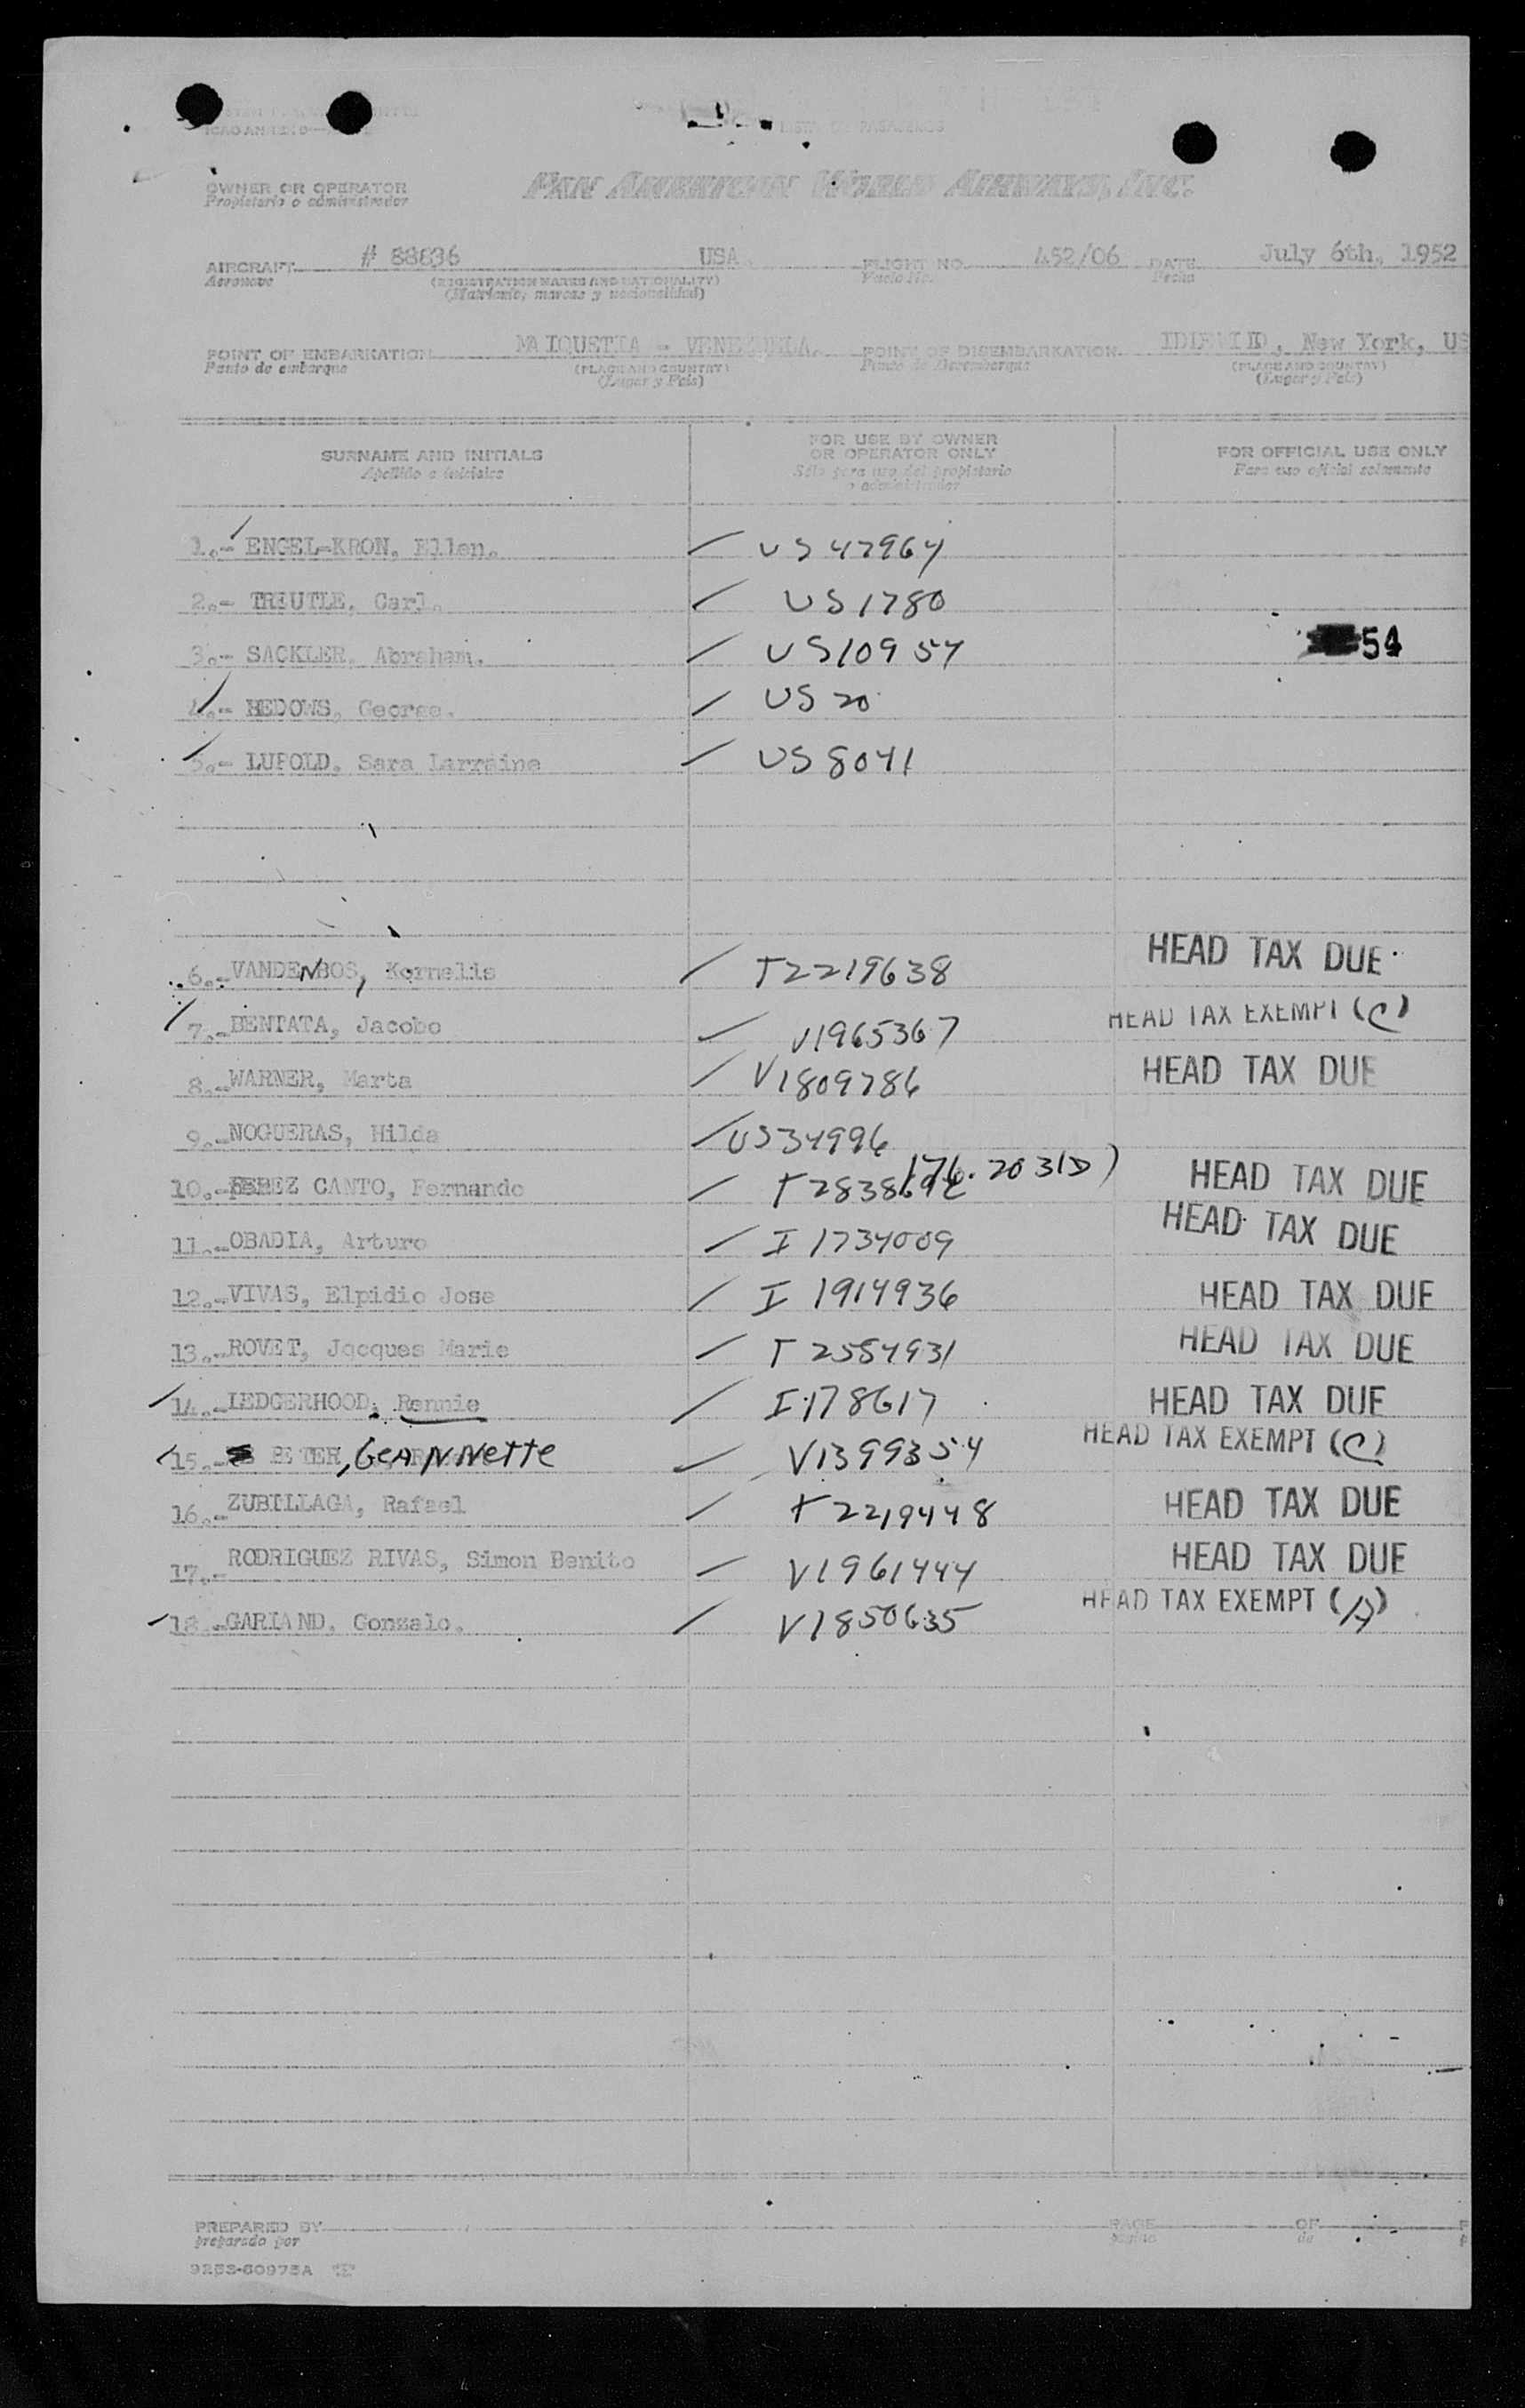 LISTA DE PASAJEROS
OWNER OR OPERATOR
Propietario o administrador
PAN AMERICAN WORLD AIRWAYS, INC.
AIRCRAFT # 88836 USA FLIGHT NO. 452/06 DATE July 6th, 1952
Aeronave (REGISTRATION MARKS AND NATIONALITY) Vuelo No. Fecha
(Matrícula, marcas y nacionalidad)
POINT OF EMBARKATION MAIQUETIA - VENEZUELA. POINT OF DISEMBARKATION IDLEWILD, New York, US
Punto de embarque (PLACE AND COUNTRY) Punto de Desembarque (PLACE AND COUNTRY)
(Lugar y País) (Lugar y País)
SURNAME AND INITIALS FOR USE BY OWNER OR OPERATOR ONLY FOR OFFICIAL USE ONLY
Apellido e iniciales Sólo para uso del propietario o administrador Para uso oficial solamente
1.- ENGEL-KRON, Ellen. US 47964
2.- TREUTLE, Carl. US 1780
3.- SACKLER, Abraham. US 10957 54
4.- BEDOWS, George. US 20
5.- LUPOLD, Sara Larraine US 8041
6.- VANDENBOS, Kornelis T2219638 HEAD TAX DUE
7.- BENTATA, Jacobo V1965367 HEAD TAX EXEMPT (C)
8.- WARNER, Marta V1809786 HEAD TAX DUE
9.- NOGUERAS, Hilda US34996
10.- PEREZ CANTO, Fernando (176.2031D) HEAD TAX DUE
11.- OBADIA, Arturo I 1734009 HEAD TAX DUE
12.- VIVAS, Elpidio Jose I 1914936 HEAD TAX DUE
13.- ROVET, Jacques Marie T 2554931 HEAD TAX DUE
14.- LEDGERHOOD, Rennie I 178617 HEAD TAX DUE
15.- PETER, GEANNETTE V1399354 HEAD TAX EXEMPT (C)
16.- ZUBILLAGA, Rafael T2219448 HEAD TAX DUE
17.- RODRIGUEZ RIVAS, Simon Benito V1961444 HEAD TAX DUE
18.- GARLAND, Gonzalo. V1850635 HEAD TAX EXEMPT (A)
PREPARED BY PAGE OF
preparado por página de
9253-60975A